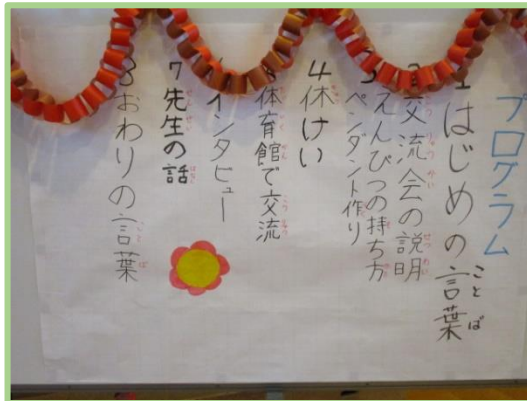 プログラム
1はじめの言葉
2交流会の説明
3えんぴつの持ち方
ペンダント作り
4休けい
体育館で交流
インタビュー
7先生の話
8おわりの言葉